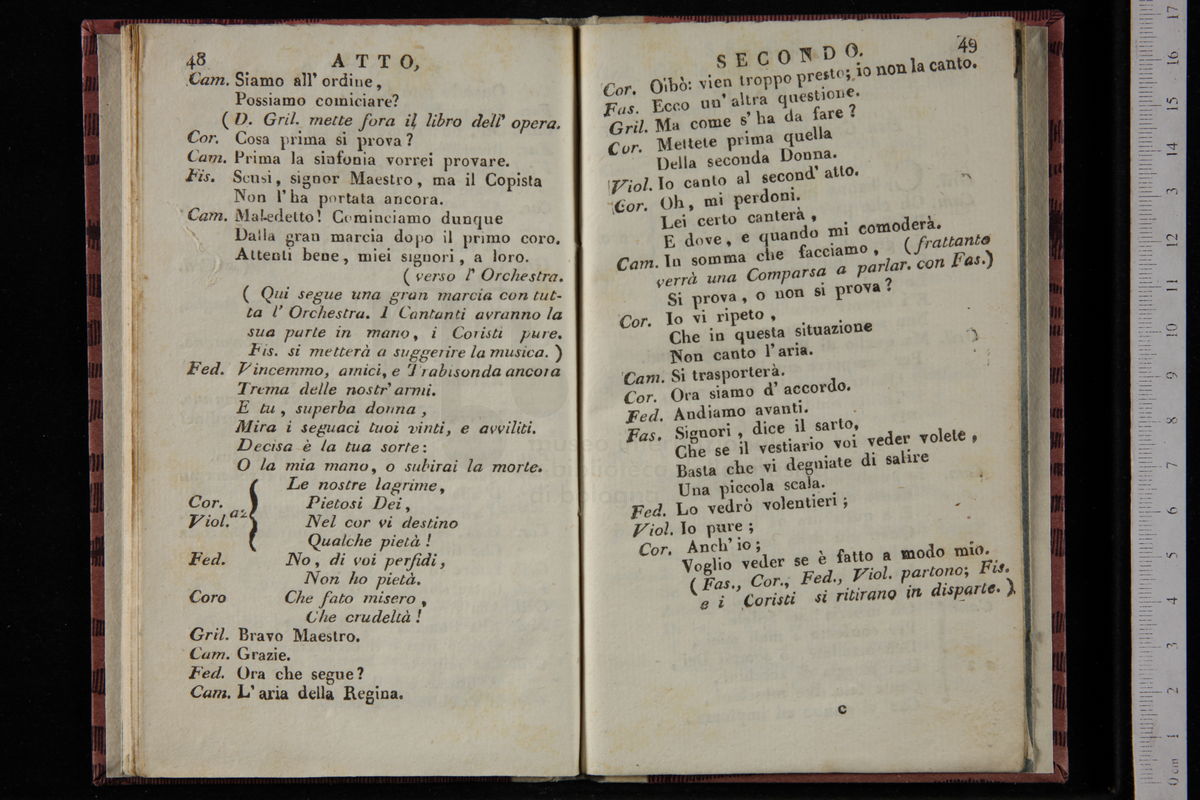 48
ATTO,
Cam. Siamo all' ordine,
Possiamo cominciare?
( D. Gril. mette fora il libro dell' opera.
Cor. Cosa prima si prova?
Cam. Prima la sinfonia vorrei provare.
Fis. Scusi, signor Maestro, ma il Copista
Non l'ha portata ancora.
Cam. Maledetto! Cominciamo dunque
Dalla gran marcia dopo il primo coro.
Attenti bene, miei signori, a loro.
( verso l' Orchestra.
( Qui segue una gran marcia con tut-
ta l' Orchestra. I Cantanti avranno la
sua parte in mano, i Coristi pure.
Fis. si metterà a suggerire la musica. )
Fed. Vincemmo, amici, e Trabisonda ancora
Trema delle nostr' armi.
E tu, superba donna,
Mira i seguaci tuoi vinti, e avviliti.
Decisa è la tua sorte:
O la mia mano, o subirai la morte.
Le nostre lagrime,
Cor. Pietosi Dei,
Viol. a2 Nel cor vi destino
Qualche pietà!
Fed. No, di voi perfidi,
Non ho pietà.
Coro Che fato misero,
Che crudeltà!
Gril. Bravo Maestro.
Cam. Grazie.
Fed. Ora che segue?
Cam. L' aria della Regina.
SECONDO.
49
Cor. Oibò: vien troppo presto; io non la canto.
Fas. Ecco un' altra questione.
Gril. Ma come s' ha da fare?
Cor. Mettete prima quella
Della seconda Donna.
Viol. Io canto al second' atto.
Cor. Oh, mi perdoni.
Lei certo canterà,
E dove, e quando mi comoderà.
Cam. In somma che facciamo, ( frattanto
verrà una Comparsa a parlar. con Fas.)
Si prova, o non si prova?
Cor. Io vi ripeto,
Che in questa situazione
Non canto l'aria.
Cam. Si trasporterà.
Cor. Ora siamo d' accordo.
Fed. Andiamo avanti.
Fas. Signori, dice il sarto,
Che se il vestiario voi veder volete,
Basta che vi degniate di salire
Una piccola scala.
Fed. Lo vedrò volentieri;
Viol. Io pure;
Cor. Anch' io;
Voglio veder se è fatto a modo mio.
( Fas., Cor., Fed., Viol. partono; Fis.
e i Coristi si ritirano in disparte. )
c